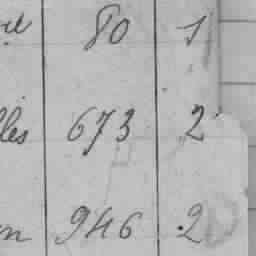 80 1
lles 673 2
n 946 2